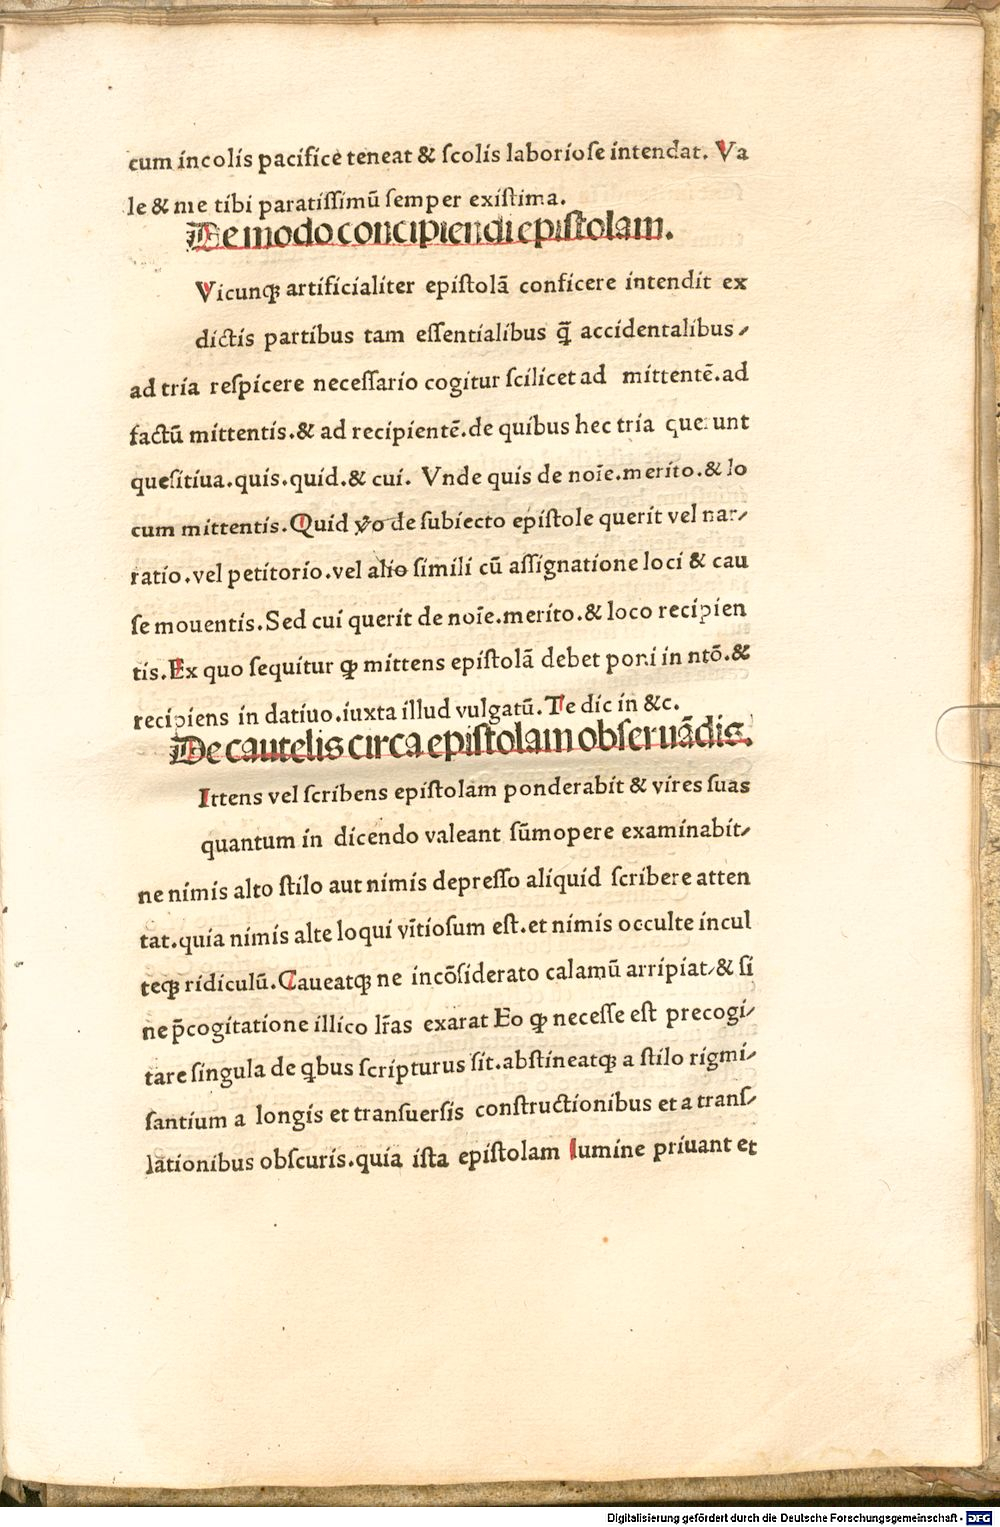 cum incolis pacifice teneat & ſcolis laborioſe intendat. Va
le & me tibi paratiſſimū ſemper exiſtima.
De modo concipiendi epiſtolam.
Vicunqꝫ artificialiter epiſtolā conficere intendit ex
dictis partibus tam eſſentialibus q̄ accidentalibus⸗
ad tria reſpicere neceſſario cogitur ſcilicet ad mittentē.ad
factū mittentis.& ad recipientē.de quibus hec tria querunt
queſitiua.quis.quid.& cui. Vnde quis de noīe.merito.& lo
cum mittentis.Quid v̄o de ſubiecto epiſtole querit vel nar⸗
ratio.vel petitorio.vel alio ſimili cū aſſignatione loci & cau
ſe mouentis.Sed cui querit de noīe.merito.& loco recipien
tis.Ex quo ſequitur ꝙ mittens epiſtolā debet poni in ntō.&
recipiens in datiuo.iuxta illud vulgatū.Te dic in &c.
De cautelis circa epiſtolam obſeruādis.
Ittens vel ſcribens epiſtolam ponderabit & vires ſuas
quantum in dicendo valeant ſūmopere examinabit⸗
ne nimis alto ſtilo aut nimis depreſſo aliquid ſcribere atten
tat.quia nimis alte loqui vītioſum eſt.et nimis occulte incul
teqꝫ ridiculū.Caueatqꝫ ne incōſiderato calamū arripiat⸗& ſi
ne p̄cogitatione illico lr̄as exarat Eo ꝙ neceſſe eſt precogi⸗
tare ſingula de qbus ſcripturus ſit.abſtineatqꝫ a ſtilo rigmi⸗
ſantium a longis et tranſuerſis conſtructionibus et a tranſ⸗
lationibus obſcuris.quia iſta epiſtolam lumine priuant et
Digitalisierung gefördert durch die Deutsche Forschungsgemeinschaft - DFG